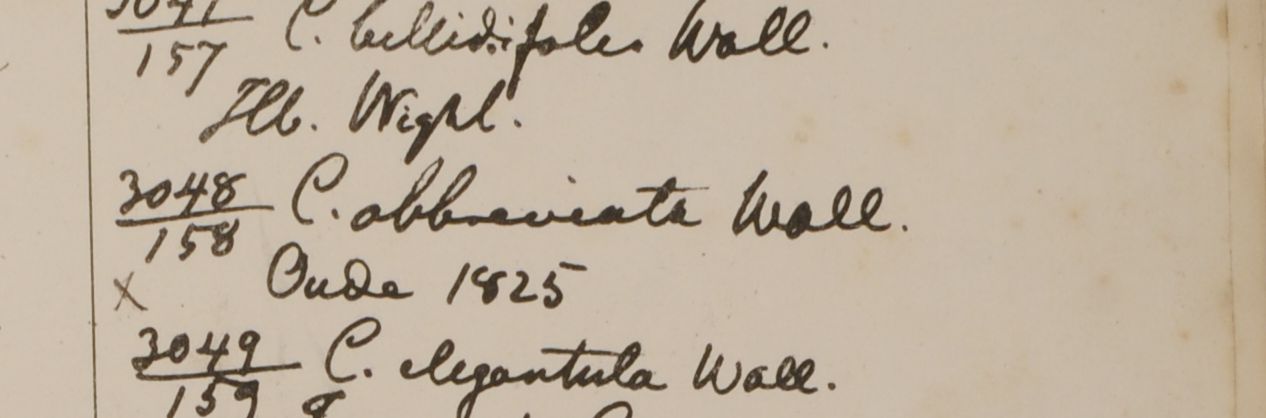 3047
157 C. bellidifolia Wall.
Hb. Wight.
3048 C. abbreviata Wall.
158
x Oude 1825
3049 C. elegantula Wall.
159